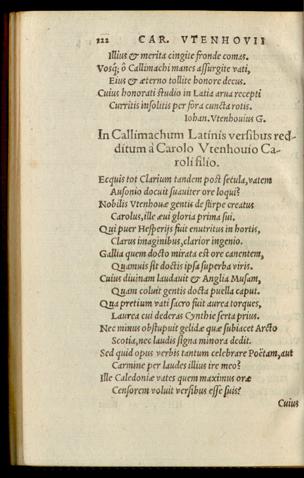 122 CAR. VTENHOVII
Illius & merita cingite fronde comas.
Vosq́; ô Callimachi manes assurgite vati,
Eius & æterno tollite honore decus.
Cuius honorati studio in Latia arua recepti
Curritis insolitis per fora cuncta rotis.
Iohan. Vtenhouius G.
In Callimachum Latinis versibus red-
ditum à Carolo Vtenhouio Ca-
roli filio.
Ecquis tot Clarium tandem post secula, vatem
Ausonio docuit suauiter ore loqui?
Nobilis Vtenhouæ gentis de stirpe creatus
Carolus, ille æui gloria prima sui.
Qui puer Hesperijs fuit enutritus in hortis,
Clarus imaginibus, clarior ingenio.
Gallia quem docto mirata est ore canentem,
Quamuis sit doctis ipsa superba viris.
Cuius diuinam laudauit & Anglia Musam,
Quam coluit gentis docta puella caput.
Qua pretium vati sacro fuit aurea torques,
Laurea cui dederas Cynthie serta prius.
Nec minus obstupuit gelidæ quæ subiacet Arcto
Scotia, nec laudis signa minora dedit.
Sed quid opus verbis tantum celebrare Poëtam, aut
Carmine per laudes illius ire meo?
Ille Caledoniæ vates quem maximus oræ
Censorem voluit versibus esse suis?
Cuius